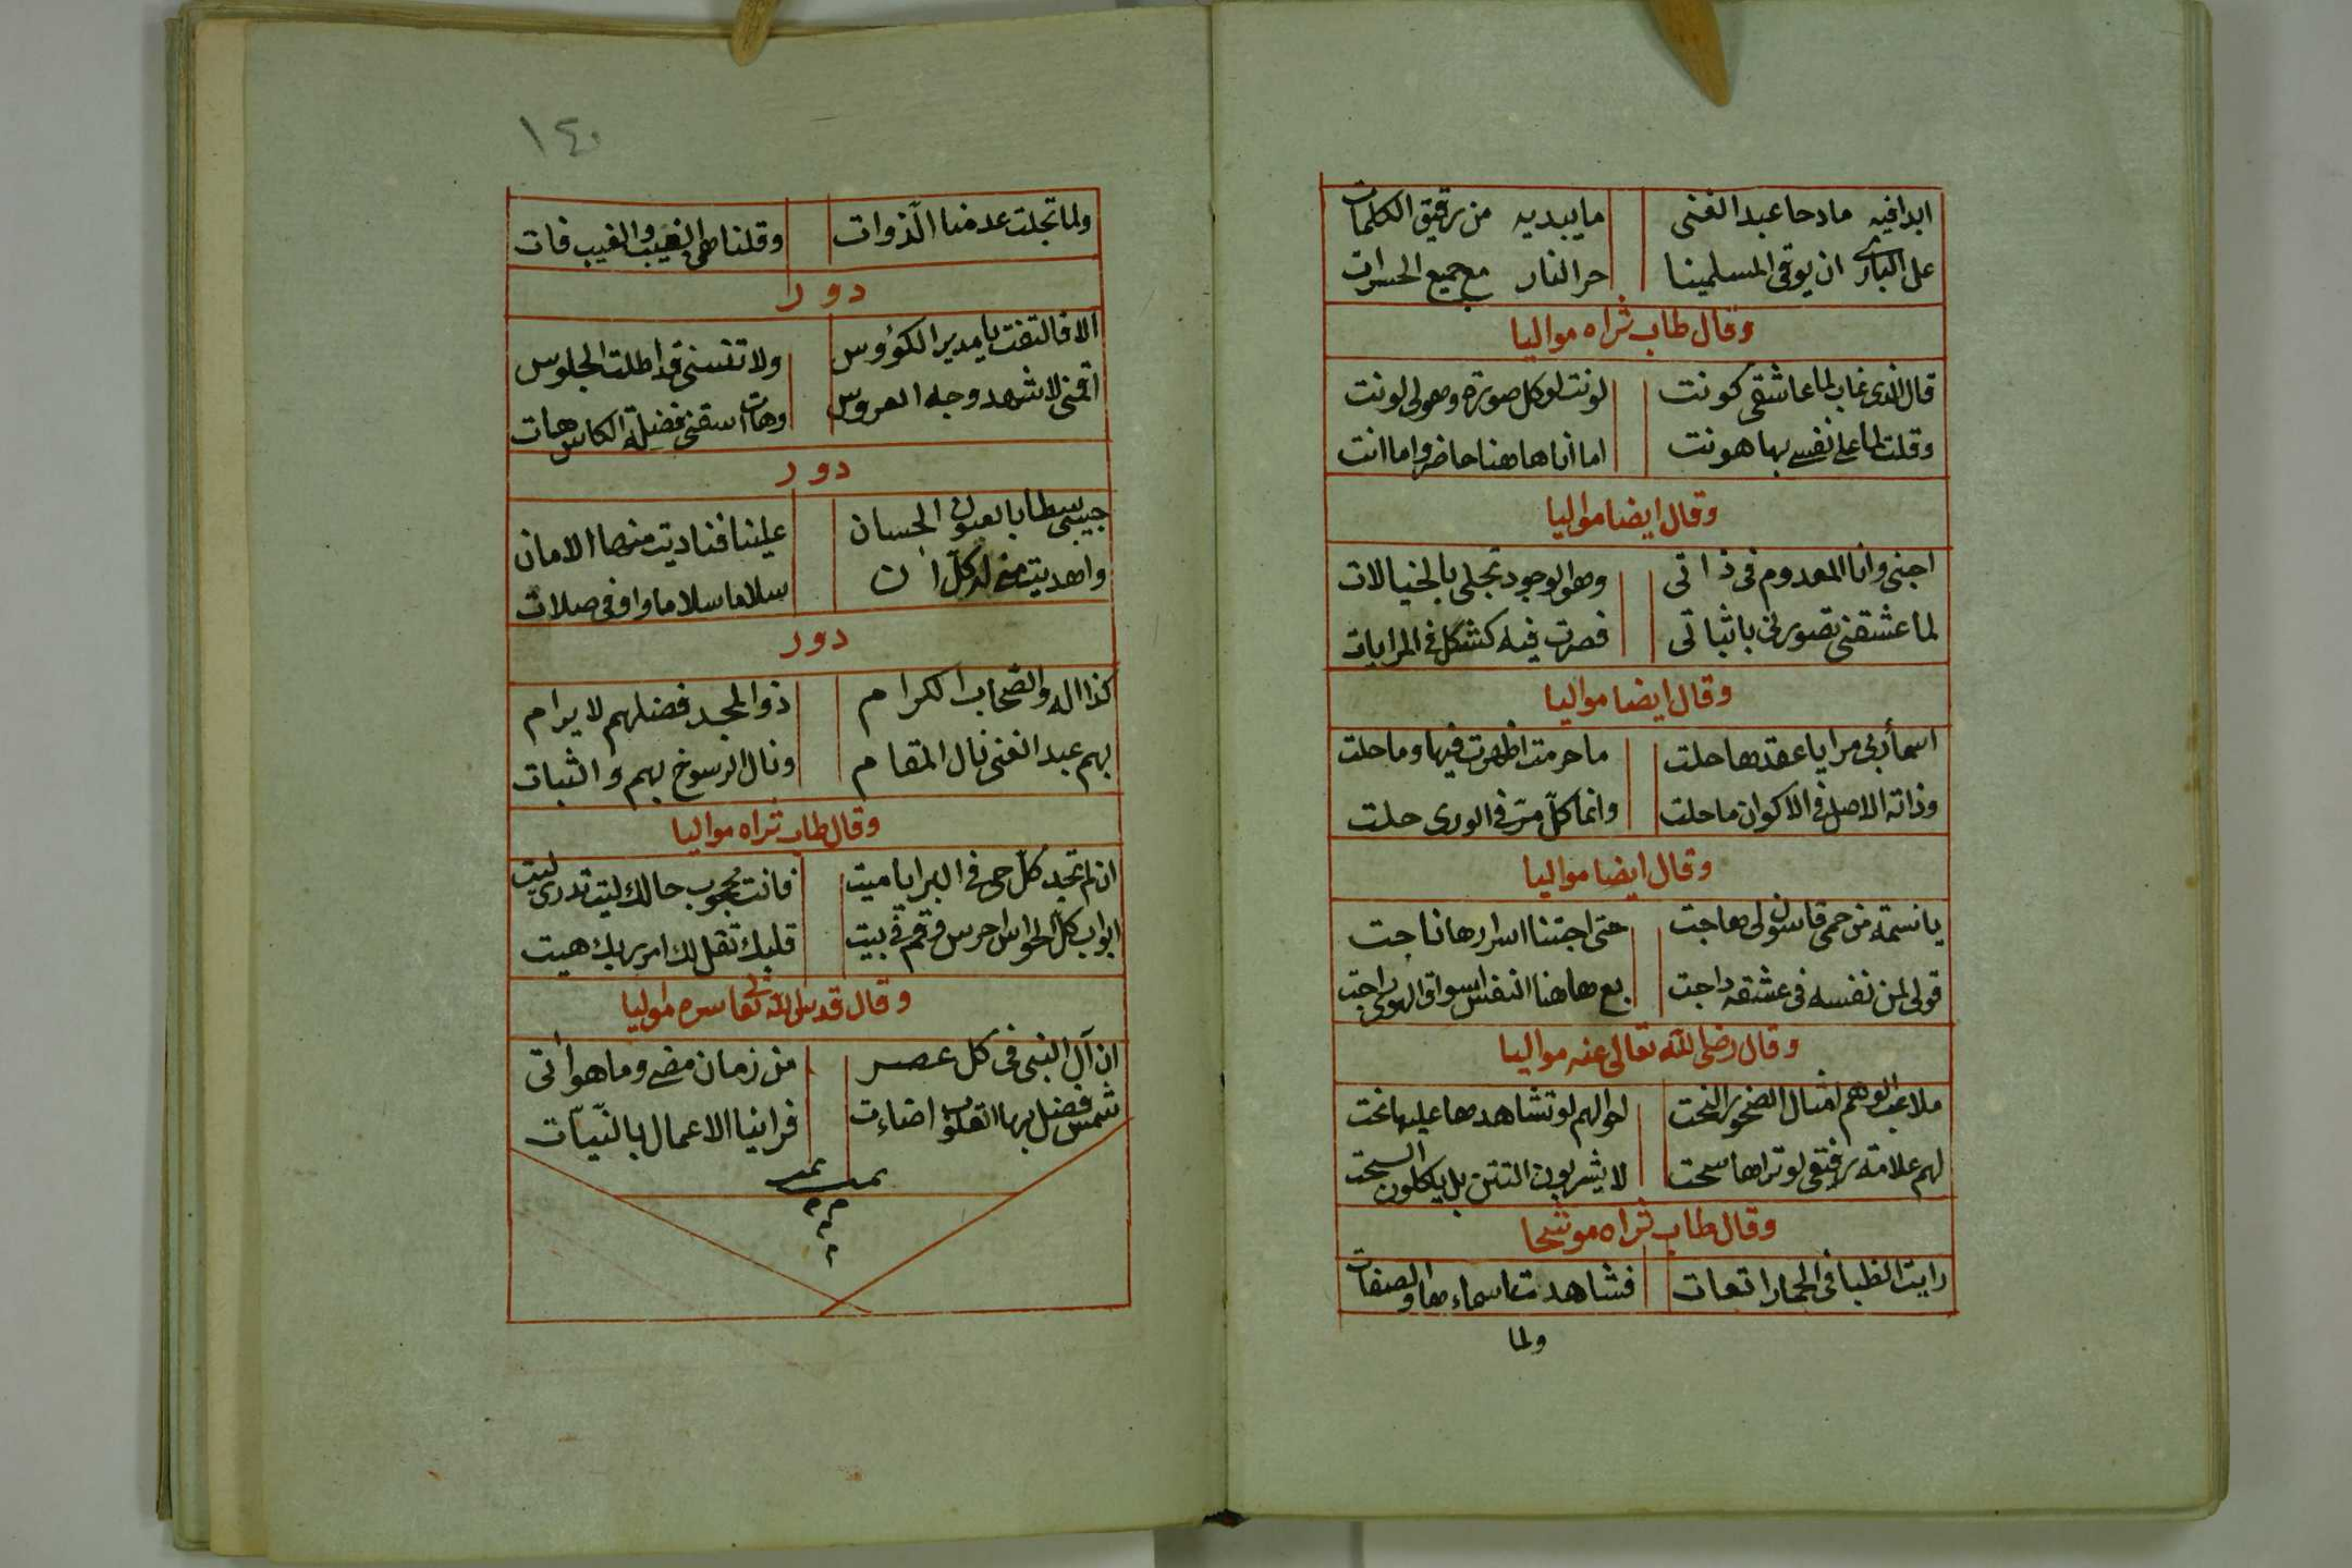 ابدا فيه مادحا عبد الغنى ما يبديه من رقيق الكلمات
عل البارى ان يوقى المسلمينا حر النار مع جميع الحسرات
وقال طاب ثراه مواليا
قال الذى غاب لما عاشقى كونت لونت لو كل صورة وهو لى لونت
وقلت لما على نفسى بها هونت اما انا هاهنا حاضر واما انت
وقال ايضا مواليا
اجنى وانا المعدوم فى ذاتى وهو الوجود تجلى بالخيالات
لما عشقنى تصورنى باثباتى فصرت فيه كشكل فى المرايات
وقال ايضا مواليا
اسما ربى مرايا عقدها حلت ما حرمت اظهرت فيها وما حلت
وذاته الاصل فى الاكوان ما حلت وانما كل من فى الورى حلت
وقال ايضا مواليا
يا نسمة من حمى قاسون لى هاجت حتى اجتنا اسرارها ناجت
قولى لمن نفسه فى عشقه داجت بع هاهنا النفس اسواق الهوى راجت
وقال رضى الله تعالى عنه مواليا
ملاعب الوهم امثال الصخور النحت احوالهم لو تشاهدها عليها نحت
لهم علامة رفتقى لو تراها سحت لا يشربون التتن بل ياكلون السحت
وقال طاب ثراه موشحا
رايت الظبا فى الحما راتعات فشاهدت اسماءها والصفات
ولما
١٤٠
ولما تجلت عدمنا الذوات وقلنا هى الغيب والغيب فات
دور
الا فالتفت يا مدير الكؤوس ولا تنسنى قد اطلت الجلوس
اقمنى لاشهد وجه العروس وهات اسقنى فضلة الكاس هات
دور
حبيبى سطا بالعيون الحسان علينا فناديت منها الامان
واهديت منى له كل ان سلاما سلاما واوفى صلات
دور
كذا اله والصحاب الكرام ذوا المجد فضلهم لا يرام
بهم عبد الغنى نال المقام ونال الرسوخ بهم والثبات
وقال طاب ثراه مواليا
ان لم تجد كل حى فى البرايا ميت فانت محجوب حالك ليت تدرى ليت
ابواب كل الحواس احرس وقم فى بيت قلبك تقل لك امر ربك هيت
وقال قدس الله تعالى سره مواليا
ان آل النبى فى كل عصر من زمان مضى وما هو اتى
شمس فضل بها القلوب اضاءت فراينا الاعمال بالنيات
تمت
م م م